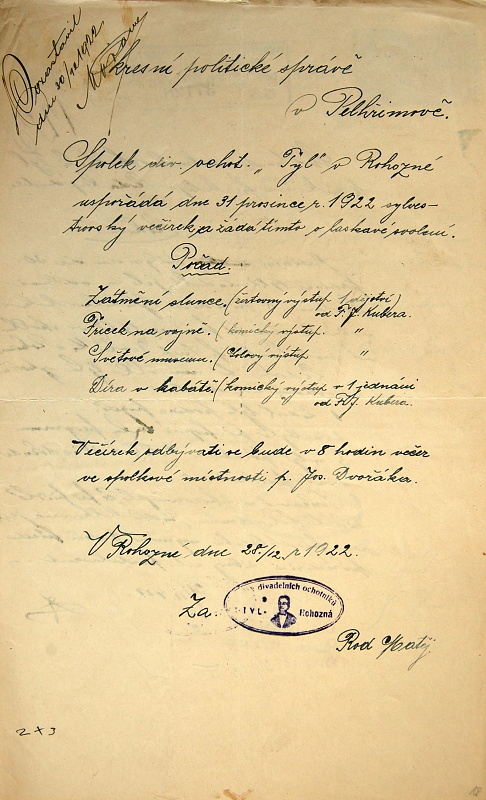 dne 30/12 1922
Okresní politické správě
v Pelhřimově.
Spolek div. ochot. „Tyl" v Rohozné
uspořádá dne 31 prosince r. 1922 sylves-
trovský večírek a žádá tímto o laskavé svolení.
Pořad.
Zatmění slunce. (žertovný výstup 1 dějství)
od F. J. Kubera.
Fricek na vojně. (komický výstup. "
Světové museum. (sólový výstup "
Díra v kabátě. (komický výstup v 1 jednání
od F. J. Kubera.
Večírek odbývati se bude v 8 hodin večer
ve spolkové místnosti p. Jos. Dvořáka.
V Rohozné dne 28./12. r 1922.
Za
divadelních ochotníků
TYL Rohozná
Rod Matěj
2 x 3